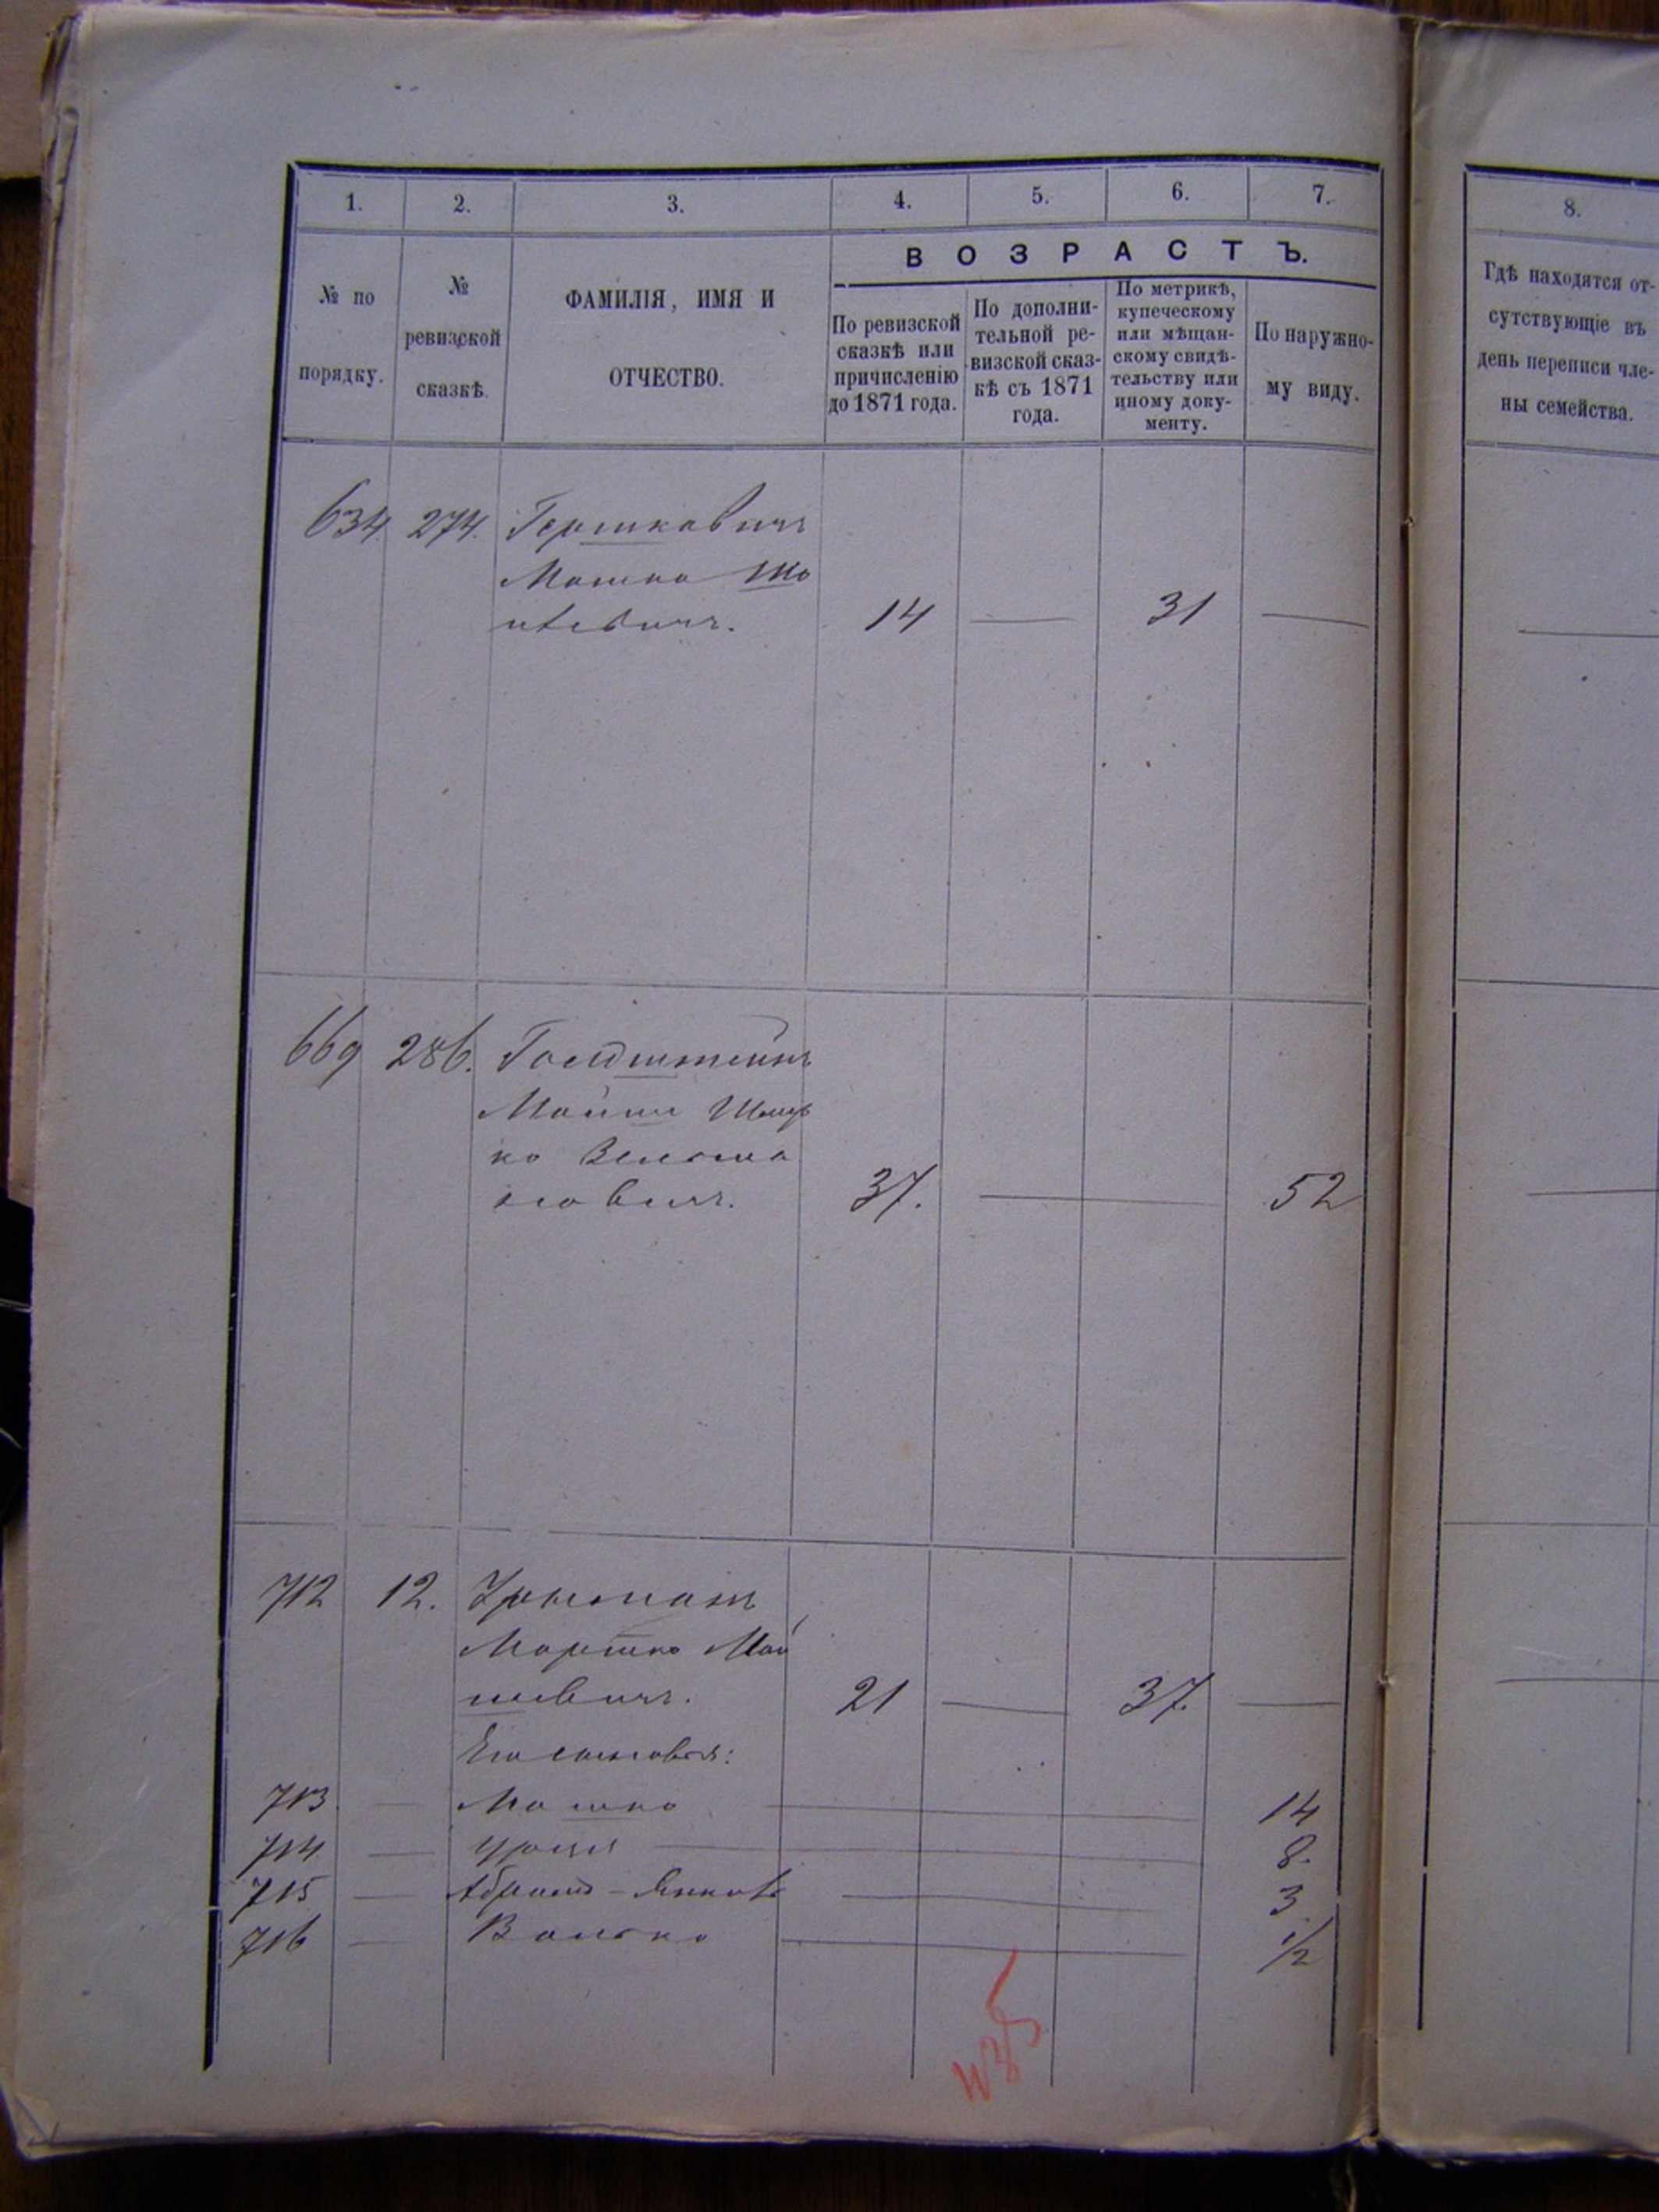 1. 2. 3. 4. 5. 6. 7. 8.
ВОЗРАСТЪ.
№ по
порядку.
№
ревизской
сказкѣ.
ФАМИЛІЯ, ИМЯ И
ОТЧЕСТВО.
По ревизской
сказкѣ или
причисленію
до 1871 года.
По дополни-
тельной ре-
визской сказ-
кѣ съ 1871
года.
По метрикѣ,
купеческому
или мѣщан-
скому свидѣ-
тельству или
иному доку-
менту.
По наружно-
му виду.
Гдѣ находятся от-
сутствующіе въ
день переписи чле-
ны семейства.
634. 274. Гершковичъ
Мошко
14 — 31 —
669 286. Голдштейнъ
Шмер
ко
37. — 52
712 12.
Мортко Мой
шевичъ. 21 — 37. —
Его сыновья:
713 — Мошко — 14
714 — — 8.
715 — Абрамъ - — 3
716 — Волько — 1/2